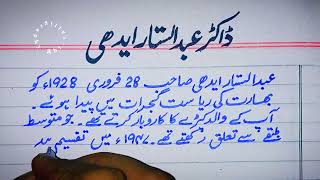 ڈاکٹر عبدالستار ایدھی
عبدالستار ایدھی صاحب 28 فروری 1928ء کو
بھارت کی ریاست گجرات میں پیدا ہوئے۔
آپ کے والد کپڑے کا کاروبار کرتے تھے۔ جو متوسط
طبقے سے تعلق رکھتے تھے۔ ۱۹۴۷ء میں تقسیم ہند